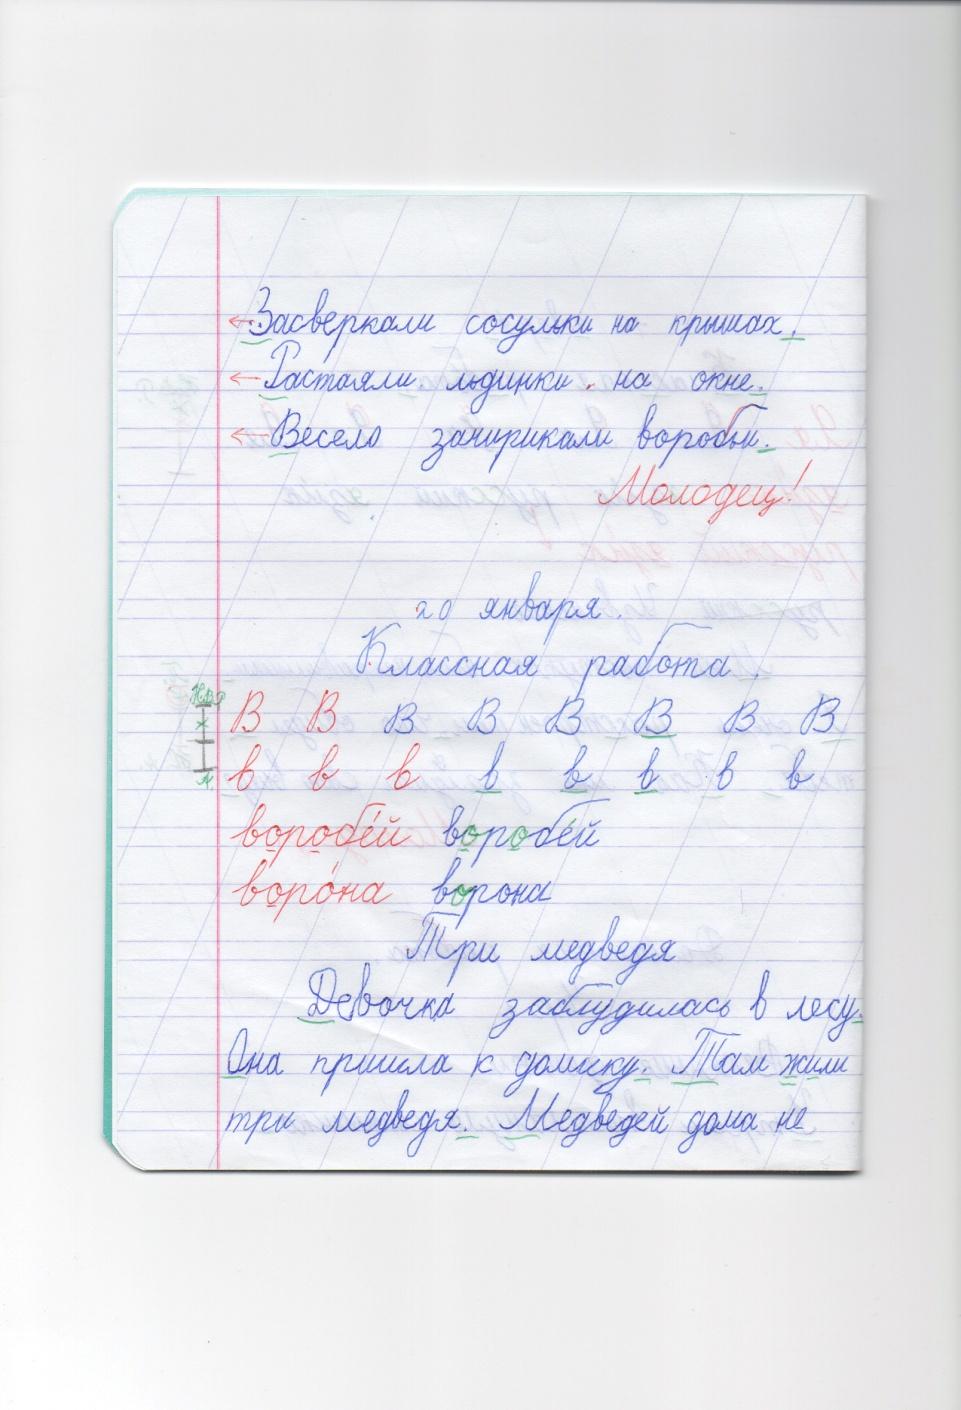 Засверкали сосульки на крышах.
Растаяли льдинки на окне.
Весело зачирикали воробьи.
Молодец!
20 января.
Классная работа.
В В В В В В В В
в в в в в в в в
воробей воробей
ворона ворона
Три медведя
Девочка заблудилась в лесу.
Она пришла к домику. Там жили
три медведя. Медведей дома не